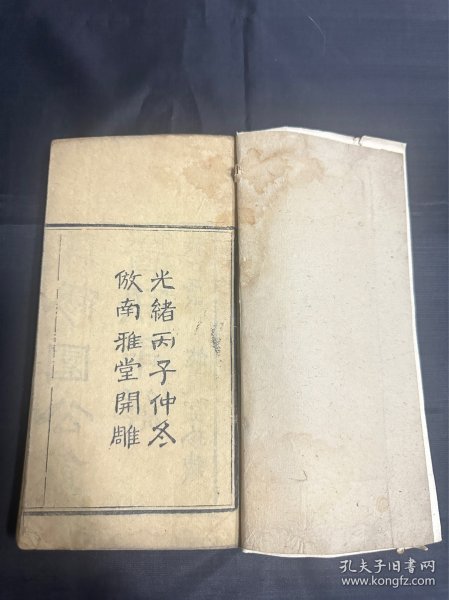 光緒丙子仲冬
倣南雅堂開雕
孔夫子旧书网
www.kongfz.com